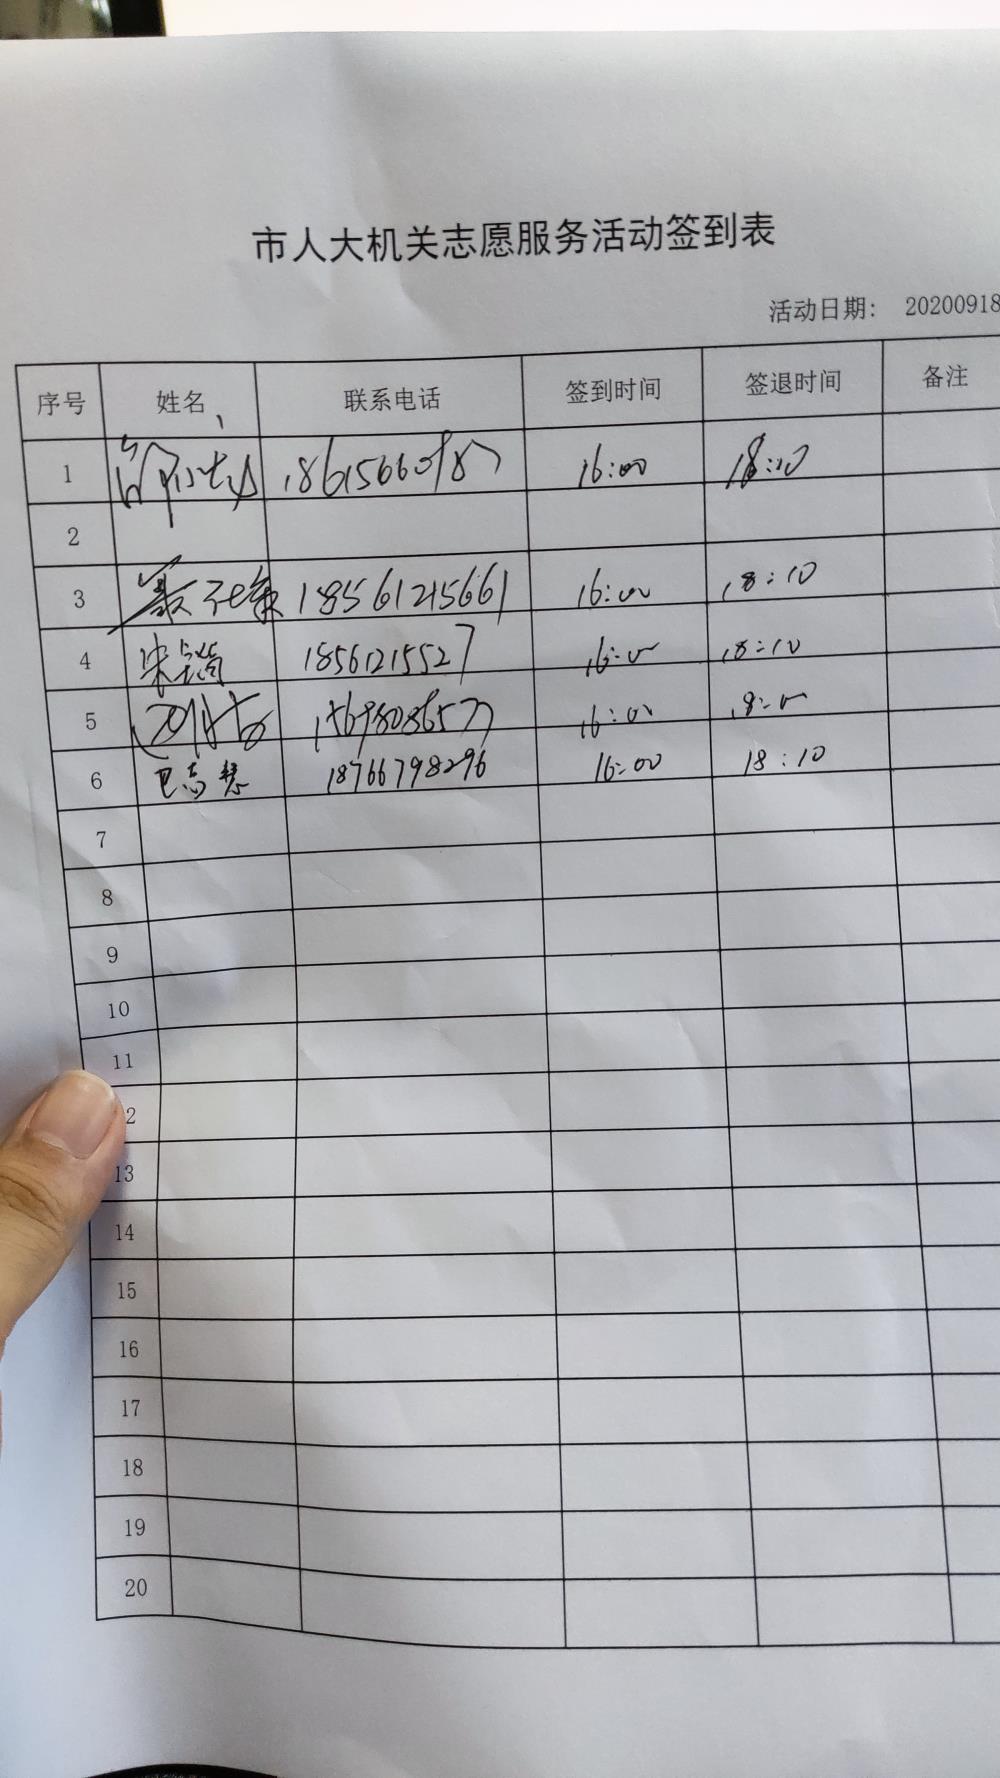 市人大机关志愿服务活动签到表
活动日期: 20200918
序号 姓名 联系电话 签到时间 签退时间 备注
1 16:00 18:10
2
3 18561215661 16:00 18:10
4 宋 18561215527 16:00 18:10
5 16:00
6 18766798296 16:00 18:10
7
8
9
10
11
2
13
14
15
16
17
18
19
20